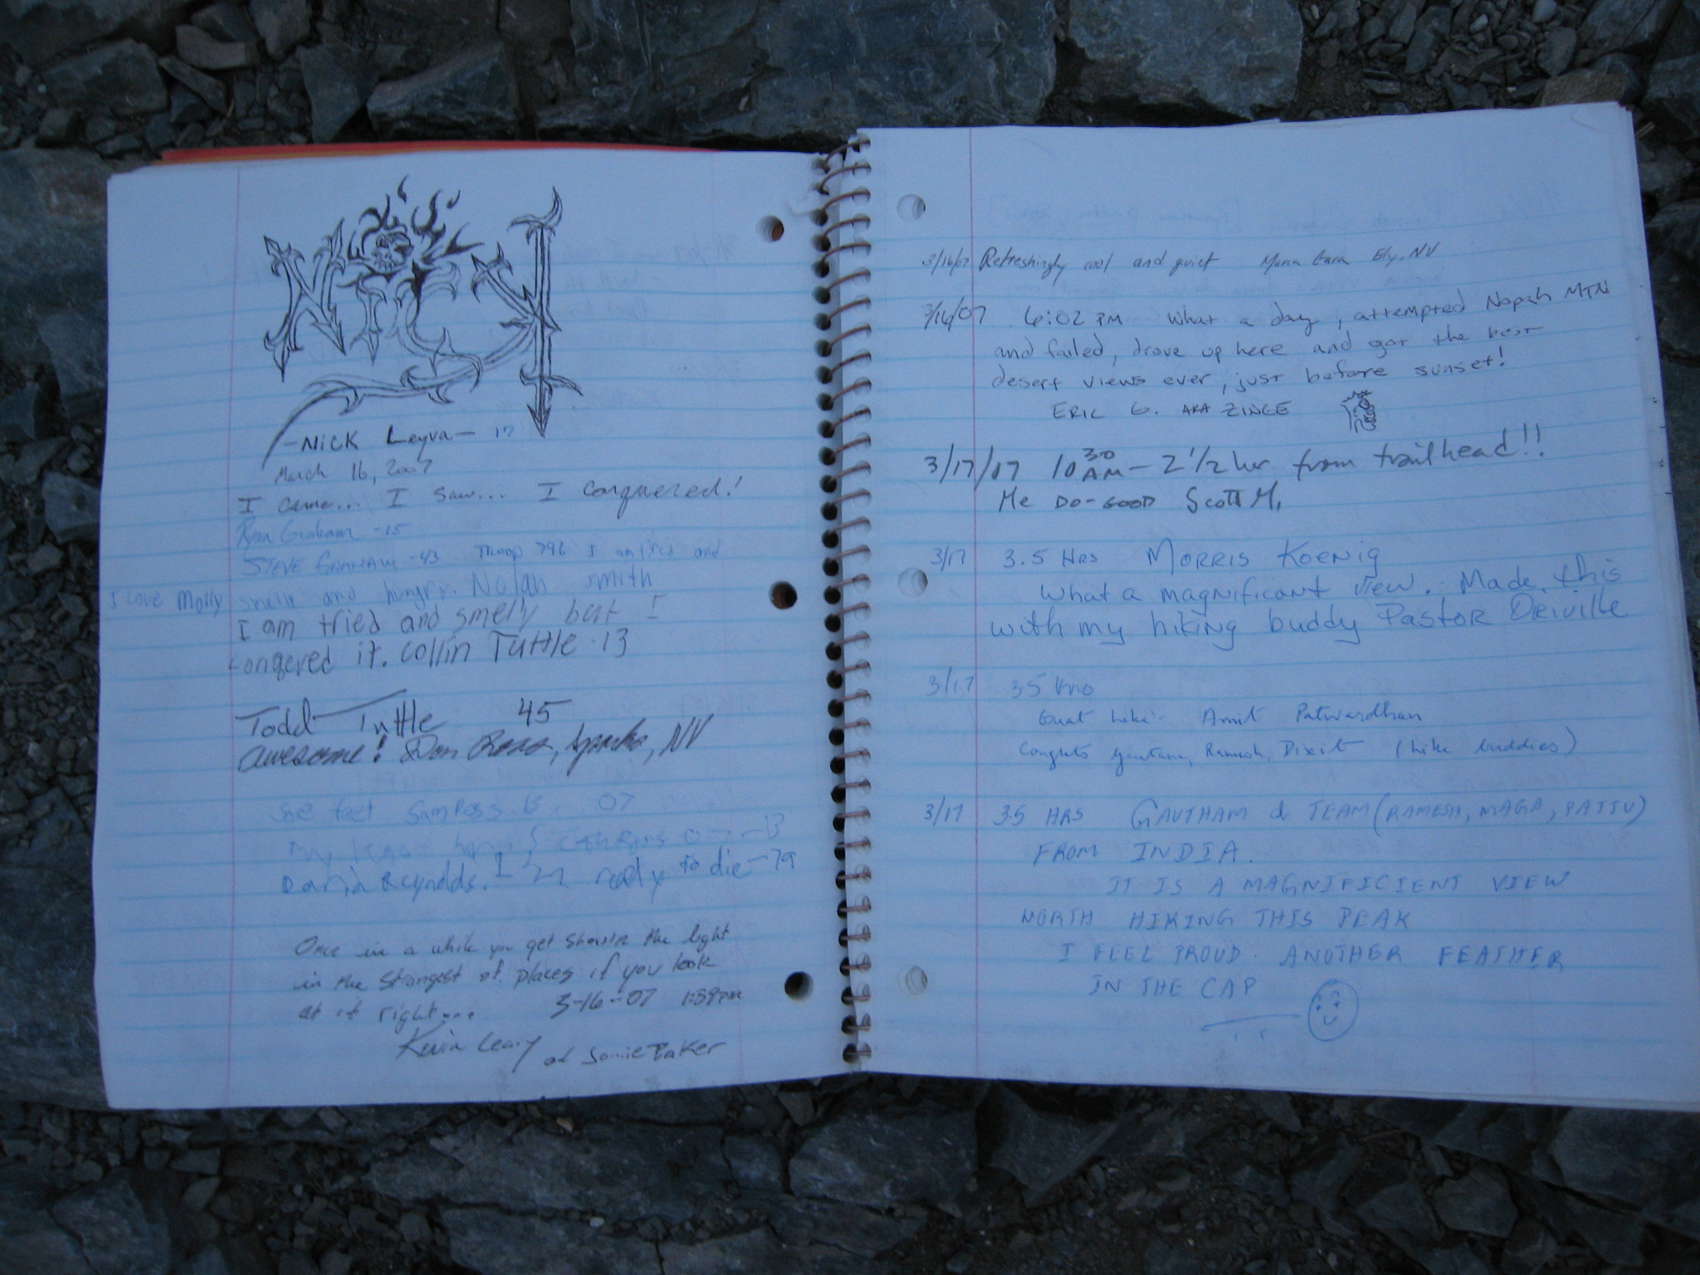 NICK
-NICK Leyva- 17
March 16, 2007
I came... I saw... I conquered!
Ryan Graham -15
STEVE GRAHAM -43 Troop 796 I am tired and
I Love Molly smelly and hungry. Nolan smith
I am tried and smelly but I
congered it. Collin Tuttle 13
Todd Tuttle 45
Awesome! Don Ross, NV
07
Reynolds. I'm ready to die -79
Once in a while you get shown the light
in the strangest of places if you look
at it right...
3-16-07 1:39pm
Kevin Leary
3/16/07 Refreshingly cool and quiet Ely, NV
3/16/07 6:02 PM What a day, attempted Nopah MTN
and failed, drove up here and got the best
desert views ever, just before sunset!
ERIC G. AKA ZINGE
3/17/07 10 30 AM - 2 1/2 hr from trailhead!!
Me DO-GOOD Scott M.
3/17 3.5 HRS MORRIS KOENIG
What a magnificant view. Made this
with my hiking buddy Pastor Orville
3/17 3.5 hrs
Great hike. Amit Patwardhan
Congrats Gautam, Ramesh, Dixit (hike buddies)
3/17 3.5 HRS GAUTHAM & TEAM (RAMESH, NAGA, PATTU)
FROM INDIA.
IT IS A MAGNIFICIENT VIEW
NORTH HIKING THIS PEAK
I FEEL PROUD. ANOTHER FEATHER
IN THE CAP